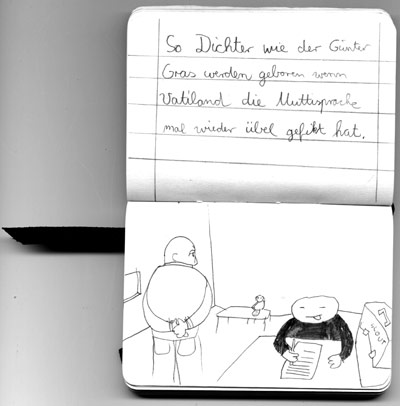 So Dichter wie der Günter
Gras werden geboren wenn
Vatiland die Muttisprache
mal wieder übel gefikt hat.